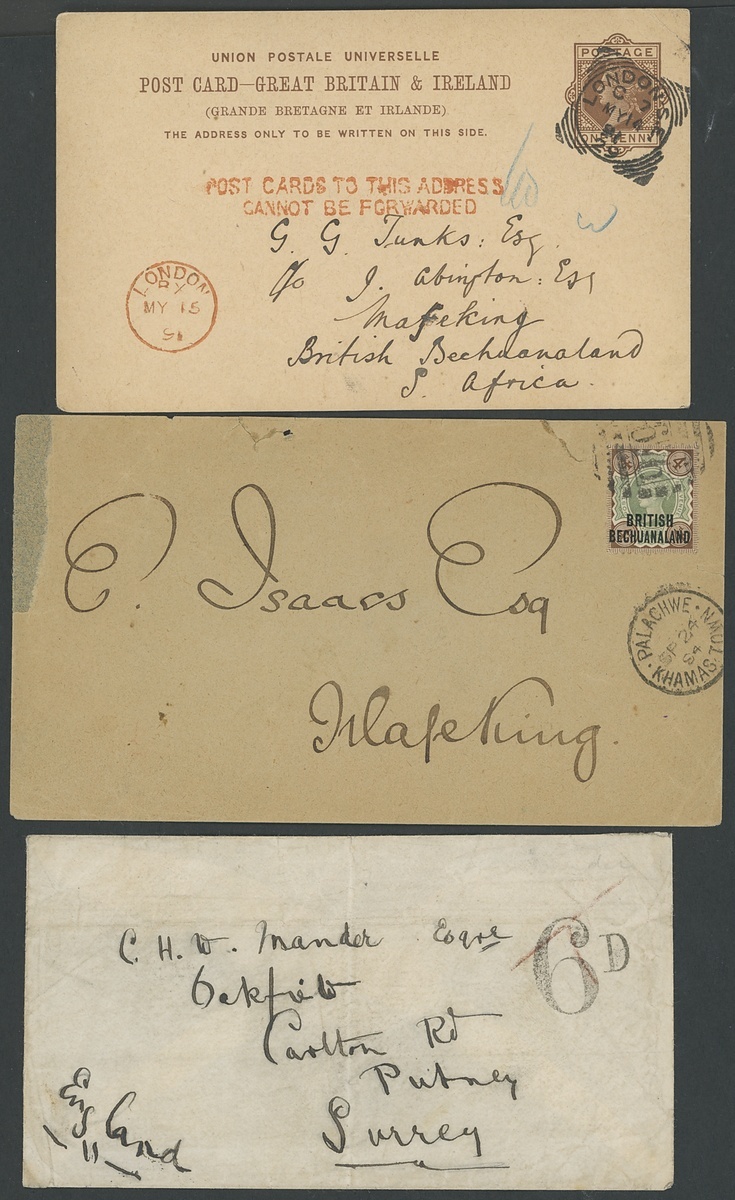 UNION POSTALE UNIVERSELLE
POST CARD—GREAT BRITAIN & IRELAND
(GRANDE BRETAGNE ET IRLANDE)
THE ADDRESS ONLY TO BE WRITTEN ON THIS SIDE.
POSTAGE
ONE PENNY
LONDON
MY 14
POST CARDS TO THIS ADDRESS
CANNOT BE FORWARDED
G. G. Tunks: Esq.
c/o J. Abington: Esq
Mafeking
British Bechuanaland
S. Africa.
LONDON
MY 15
91
4
BRITISH
BECHUANALAND
E. Isaacs Esq
Mafeking.
PALACHWE · KHAMAS TOWN
SP 24
94
6D
C. H. W. Mander Esqre
Oakfield
Carlton Rd
Putney
Surrey
England